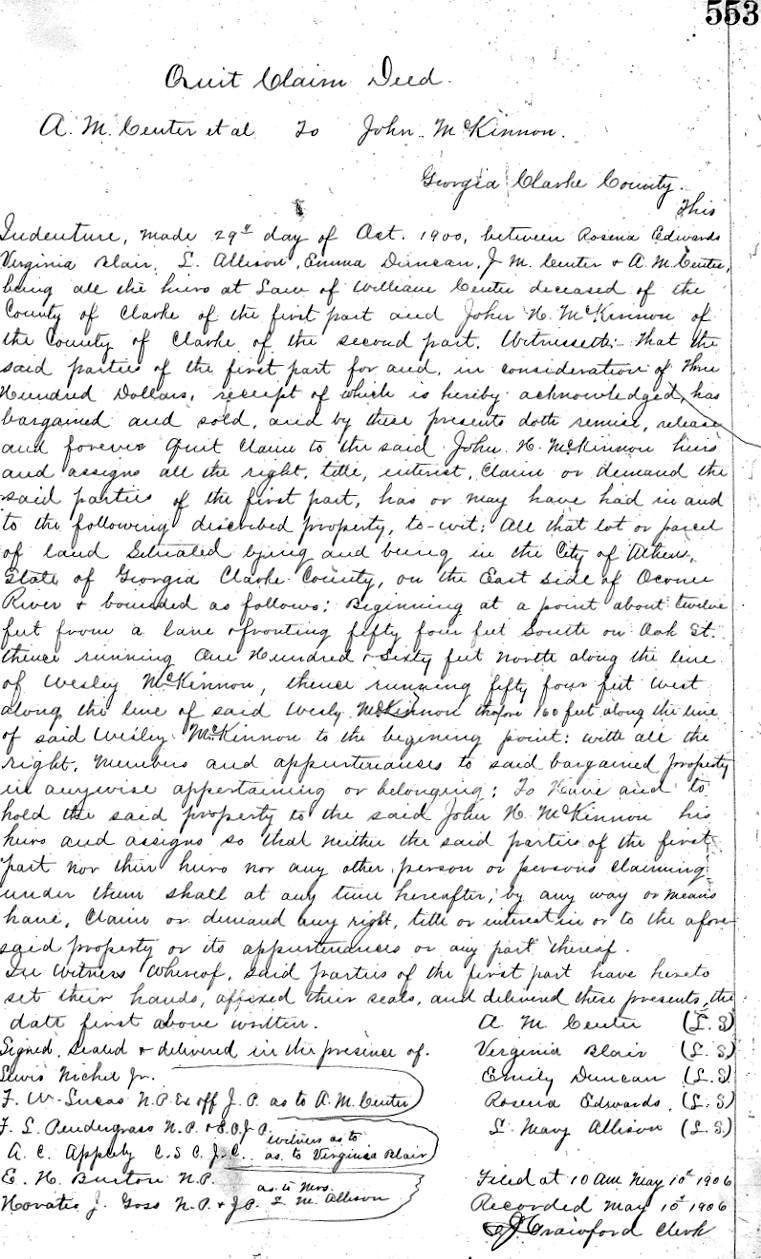 553
Quit Claim Deed.
A. M. Center et al To John McKinnon.
Georgia Clarke County.
This
Indenture, made 29th day of Oct. 1900, between Rosena Edwards
Virginia Blair, L. Allison, Emma Duncan, J M. Center & A. M. Center,
being all the heirs at Law of William Center deceased of the
County of Clarke of the first part and John H. McKinnon of
the County of Clarke of the second part. Witnesseth:- That the
said parties of the first part for and, in consideration of Three
Hundred Dollars, receipt of which is hereby acknowledged, has
bargained and sold, and by these presents doth remise, release
and forever Quit Claim to the said John. H. McKinnon heirs
and assigns all the right, title, interest, claim or demand the
said parties of the first part, has or may have had in and
to the following described property, to-wit: All that lot or parcel
of land Situated lying and being in the City of Athens,
State of Georgia Clarke County, on the East side of Oconee
River & bounded as follows: Beginning at a point about twelve
feet from a lane & fronting fifty four feet South on Oak St.
thence running One Hundred & Sixty feet North along the line
of Wesley McKinnon, thence running fifty four feet West
along the line of said Wesly McKinnon 160 feet along the line
of said Wesley McKinnon to the begining point: with all the
right, members and appurtenances to said bargained property
in anywise appertaining or belonging: To Have and to
hold the said property to the said John H. McKinnon his
heirs and assigns so that neither the said parties of the first
part nor their heirs nor any other person or persons claiming
under them shall at any time hereafter, by any way or means
have, claim or demand any right, title or interest in or to the afore
said property or its appurtenances or any part thereof.
In Witness Whereof, said parties of the first part have hereto
set their hands, affixed their seals, and delivered these presents, the
date first above written.
A M Center (L. S)
Signed, sealed & delivered in the presence of.
Virginia Blair (L. S)
Lewis Nickel Jr.
Emily Duncan (L. S)
F. W. Lucas N. P. Ex off J. P. as to A. M. Center
Rosena Edwards. (L. S)
F. L. Pendergrass N. P. & E. O. J. P.
L Mary Allison (L. S.)
witness as to
A. C. Appely C. S C. J. C. as. to Virginia Blair
E. H. Burton N. P.
as. to Mrs.
Filed at 10 AM May 10th 1906
Horatio J. Goss N. P. & J P. L M. Allison
Recorded May 10th 1906
Crawford Clerk